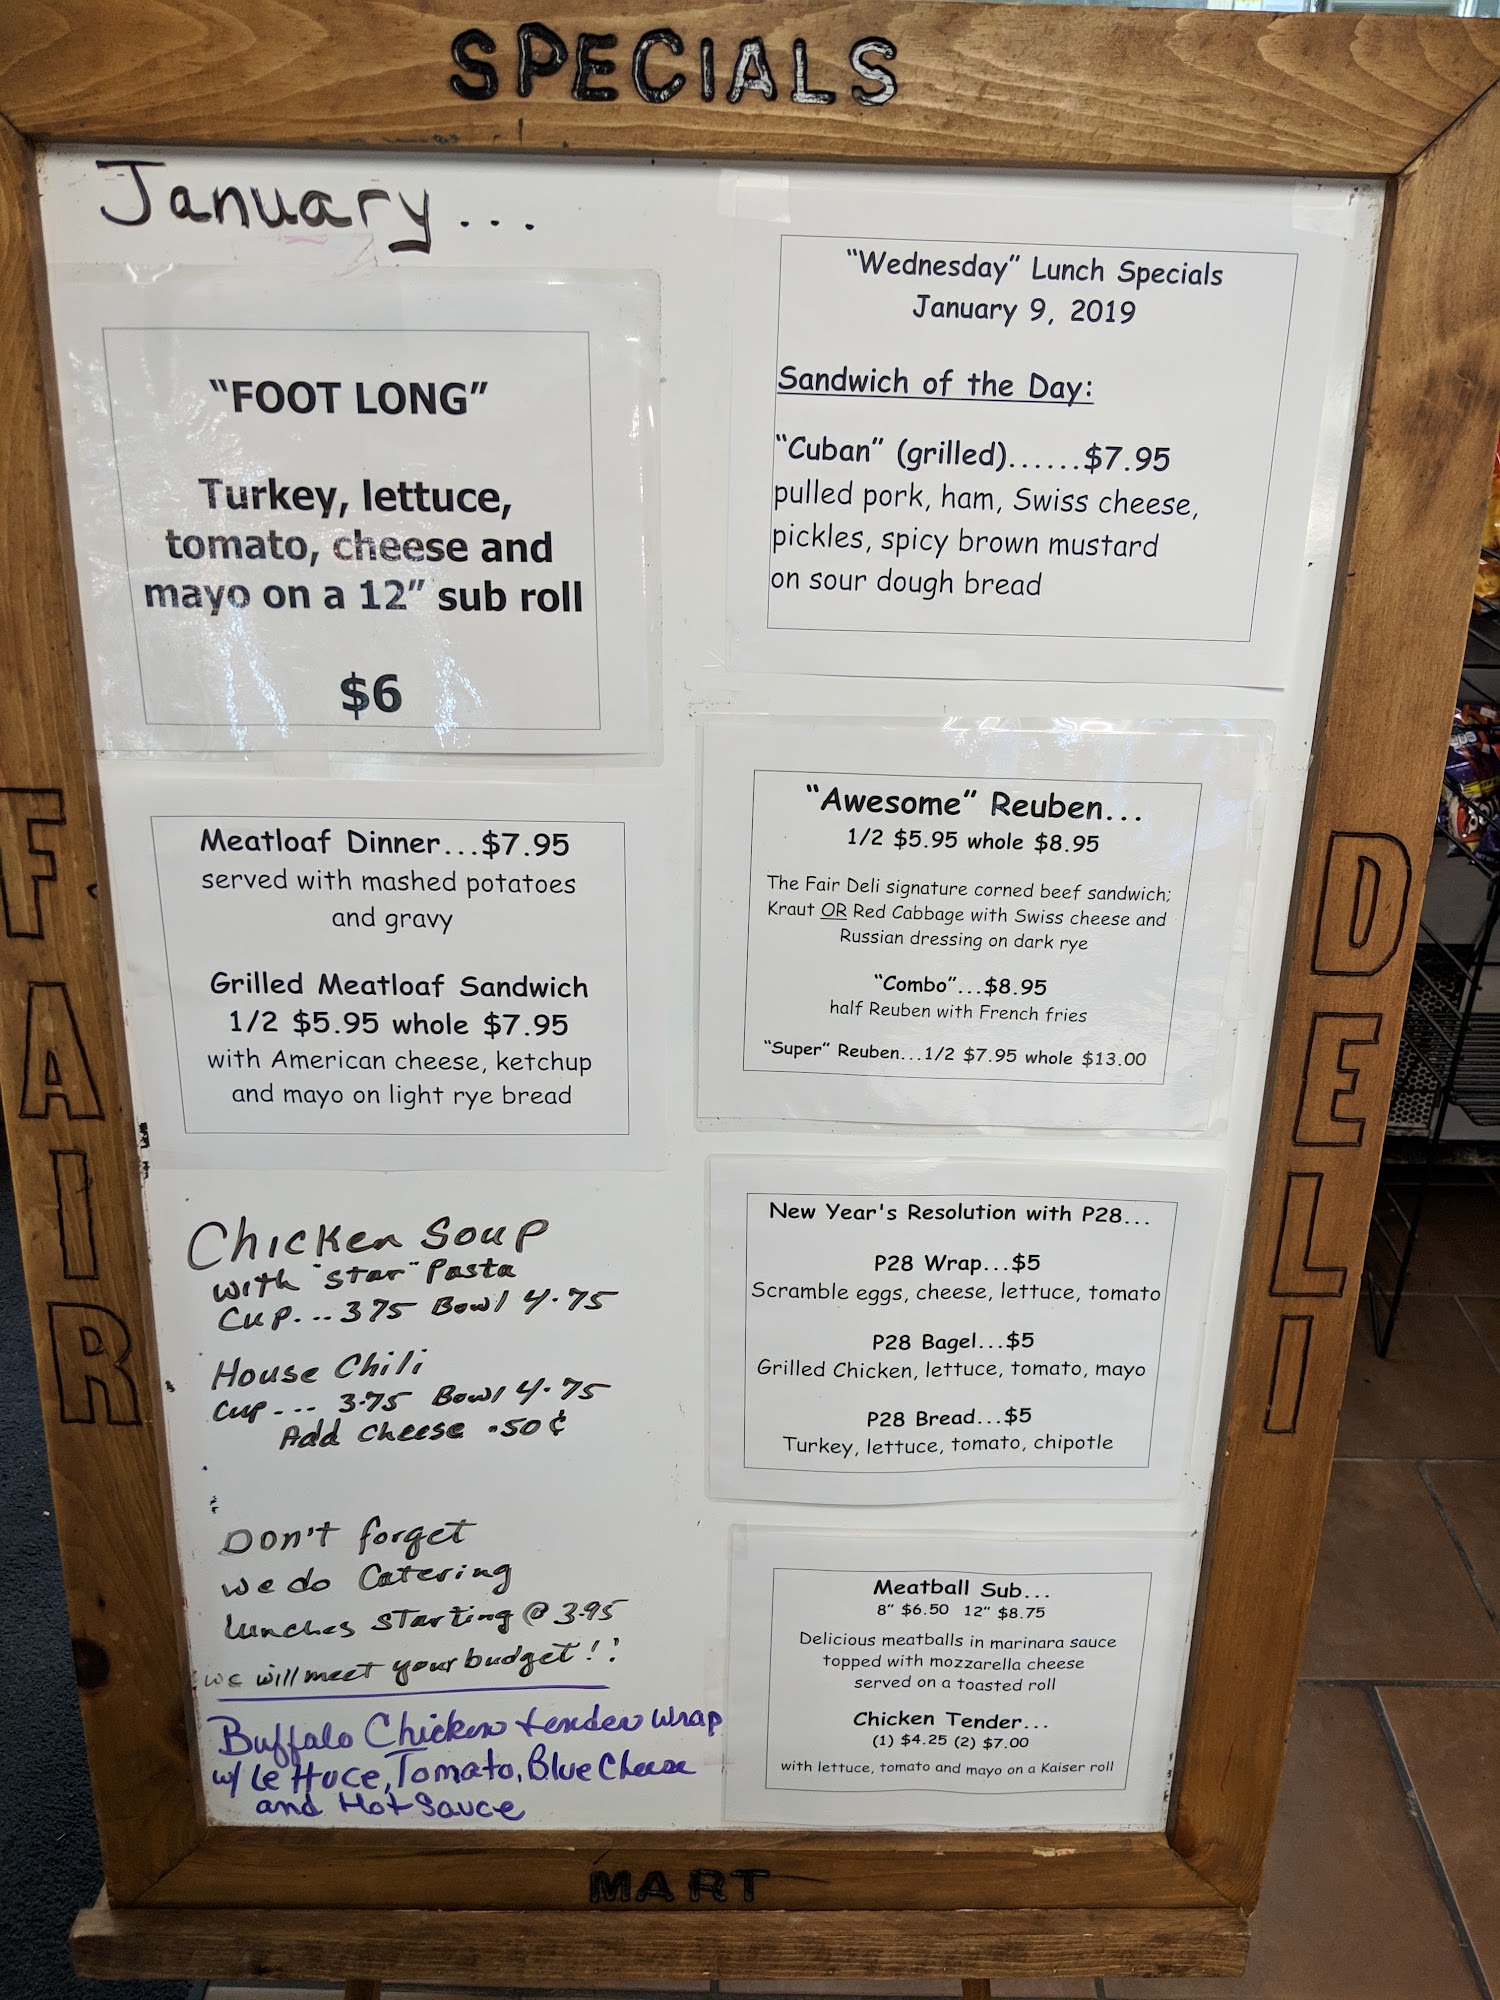 SPECIALS
January...
"FOOT LONG"
Turkey, lettuce,
tomato, cheese and
mayo on a 12" sub roll
$6
Meatloaf Dinner...$7.95
served with mashed potatoes
and gravy
Grilled Meatloaf Sandwich
1/2 $5.95 whole $7.95
with American cheese, ketchup
and mayo on light rye bread
Chicken Soup
with "star" Pasta
Cup... 3.75 Bowl 4.75
House Chili
Cup... 3.75 Bowl 4.75
Add cheese .50¢
Don't forget
we do Catering
lunches starting @ 3.95
we will meet your budget!!
Buffalo Chicken tender wrap
w/ Lettuce, Tomato, Blue Cheese
and Hot Sauce
"Wednesday" Lunch Specials
January 9, 2019
Sandwich of the Day:
"Cuban" (grilled)......$7.95
pulled pork, ham, Swiss cheese,
pickles, spicy brown mustard
on sour dough bread
"Awesome" Reuben...
1/2 $5.95 whole $8.95
The Fair Deli signature corned beef sandwich;
Kraut OR Red Cabbage with Swiss cheese and
Russian dressing on dark rye
"Combo"...$8.95
half Reuben with French fries
"Super" Reuben...1/2 $7.95 whole $13.00
New Year's Resolution with P28...
P28 Wrap...$5
Scramble eggs, cheese, lettuce, tomato
P28 Bagel...$5
Grilled Chicken, lettuce, tomato, mayo
P28 Bread...$5
Turkey, lettuce, tomato, chipotle
Meatball Sub...
8" $6.50 12" $8.75
Delicious meatballs in marinara sauce
topped with mozzarella cheese
served on a toasted roll
Chicken Tender...
(1) $4.25 (2) $7.00
with lettuce, tomato and mayo on a Kaiser roll
FAIR
DELI
MART